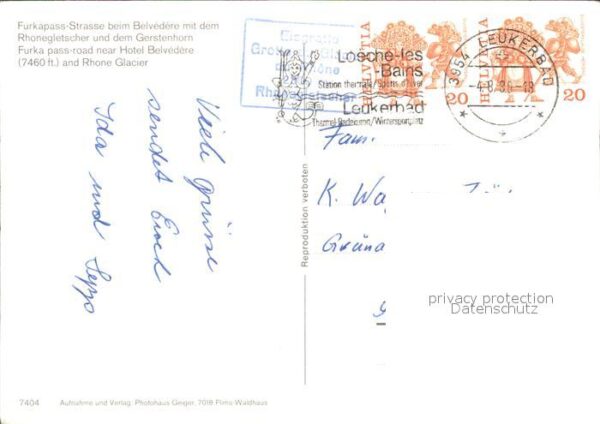 Furkapass-Strasse beim Belvédère mit dem
Rhonegletscher und dem Gerstenhorn
Furka pass-road near Hotel Belvédère
(7460 ft.) and Rhone Glacier
Eisgrotte
Rhonegletscher
Loèche-les
-Bains
Station thermale/Sports d'hiver
Leukerbad
Thermal-Badekurort/Wintersportplatz
HELVETIA
20
HELVETIA
20
3954 LEUKERBAD
Viele Grüsse
sendet Euch
Ida und Seppo
Fam.
K. Wa
Grüna
9
Reproduktion verboten
privacy protection
Datenschutz
7404
Aufnahme und Verlag: Photohaus Geiger, 7018 Flims-Waldhaus